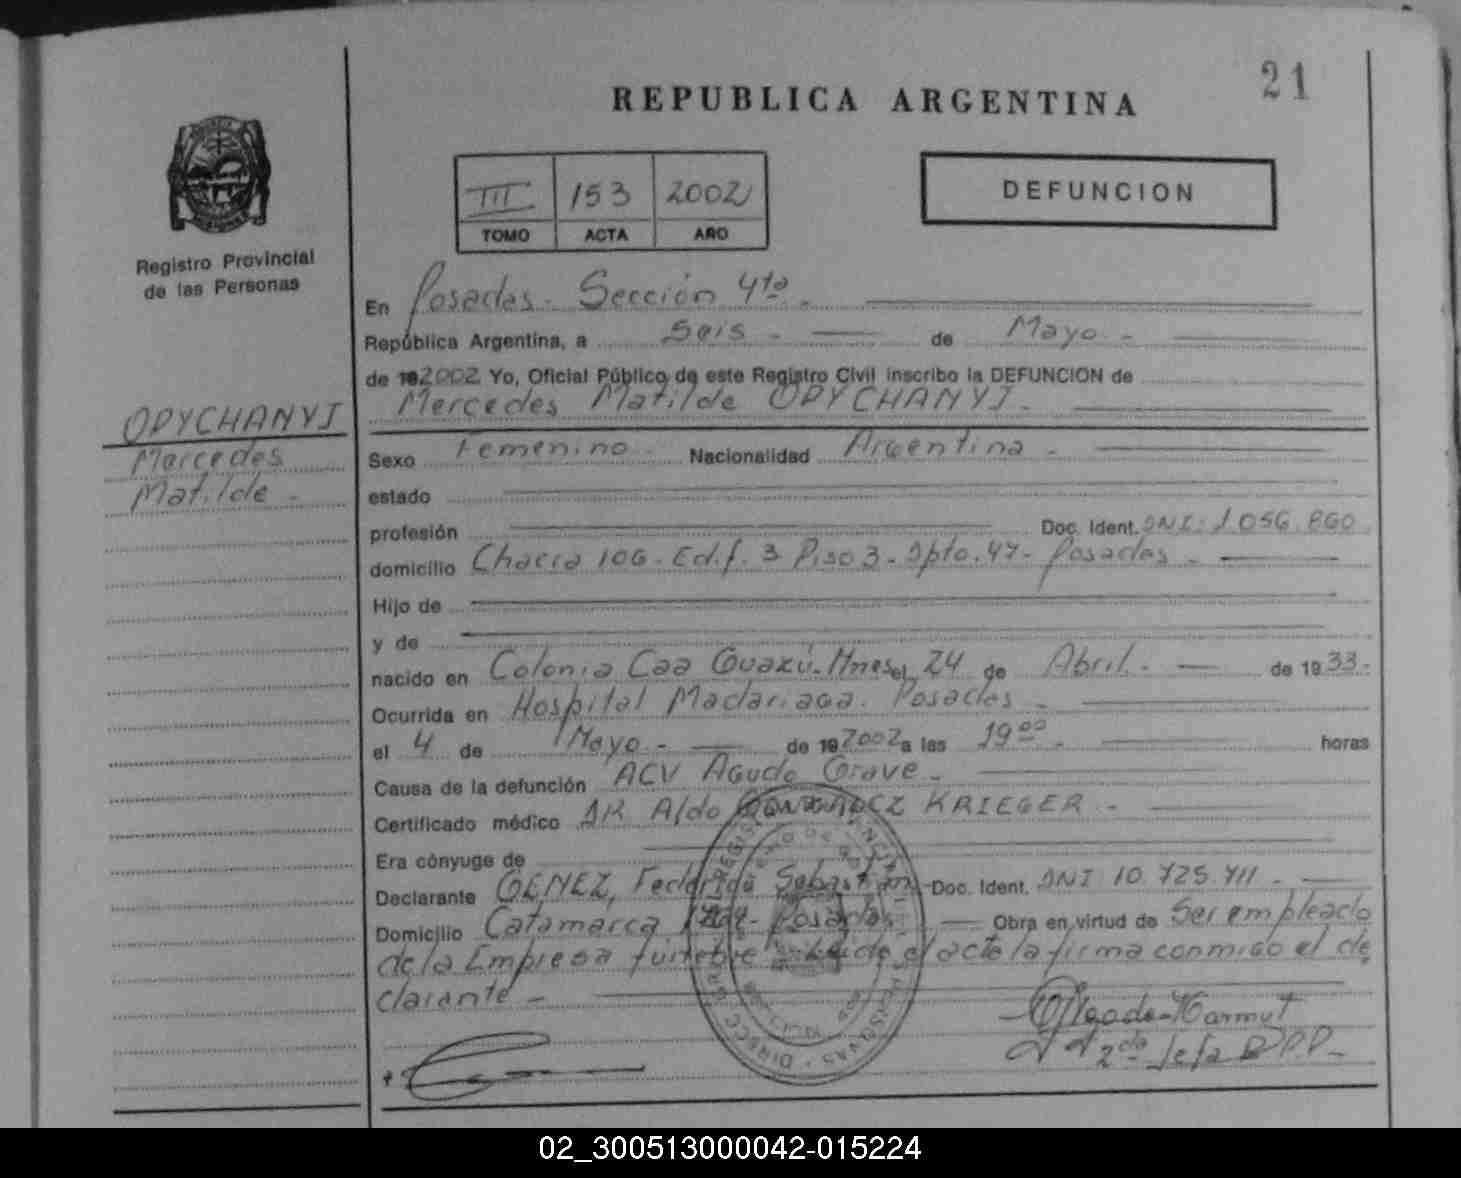 21
REPUBLICA ARGENTINA
III 153 2002
TOMO ACTA AÑO
DEFUNCION
Registro Provincial
de las Personas
OPYCHANYJ
Mercedes
Matilde -
En Posadas - Sección 4ta -
República Argentina, a Seis - de Mayo -
de 192002 Yo, Oficial Público de este Registro Civil inscribo la DEFUNCION de
Mercedes Matilde OPYCHANYJ -
Sexo Femenino - Nacionalidad Argentina -
estado
profesión Doc. Ident. DNI: 1.056.860
domicilio Chacra 106 - Edif. 3 Piso 3 - Dpto. 47 - Posadas -
Hijo de
y de
nacido en Colonia Caa Guazú - Mnes el 24 de Abril - de 1933 -
Ocurrida en Hospital Madariaga. Posadas -
el 4 de Mayo - de 192002 a las 19 00 - horas
Causa de la defunción ACV Agudo Grave -
Certificado médico DR Aldo GONZALEZ KRIEGER -
Era cónyuge de
Declarante GENEZ, Federico Sebastian - Doc. Ident. DNI 10.725.711 -
Domicilio Catamarca Posadas - Obra en virtud de Ser empleado
de la Empresa fúnebre - Leida el acta la firma conmigo el de
clarante -
2da Jefa
02_300513000042-015224